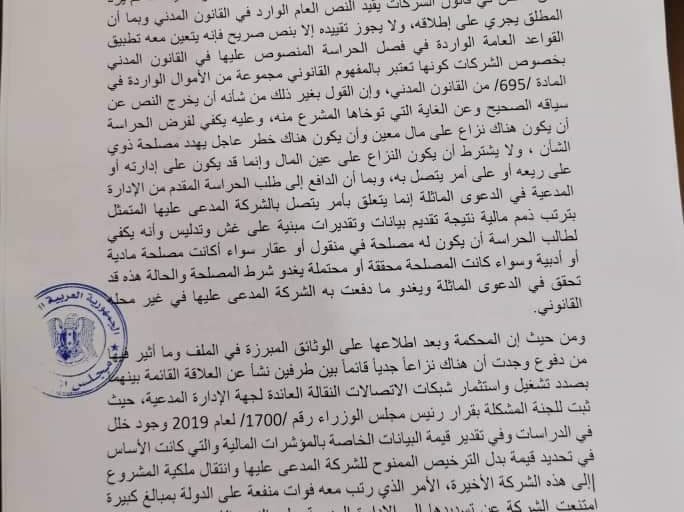 في قانون الشركات يقيد النص العام الوارد في القانون المدني وبما أن
المطلق يجري على إطلاقه، ولا يجوز تقييده إلا بنص صريح فإنه يتعين معه تطبيق
القواعد العامة الواردة في فصل الحراسة المنصوص عليها في القانون المدني
بخصوص الشركات كونها تعتبر بالمفهوم القانوني مجموعة من الأموال الواردة في
المادة /695/ من القانون المدني، وإن القول بغير ذلك من شأنه أن يخرج النص عن
سياقه الصحيح وعن الغاية التي توخاها المشرع منه، وعليه يكفي لفرض الحراسة
أن يكون هناك نزاع على مال معين وأن يكون هناك خطر عاجل يهدد مصلحة ذوي
الشأن ، ولا يشترط أن يكون النزاع على عين المال وإنما قد يكون على إدارته أو
على ريعه أو على أمر يتصل به، وبما أن الدافع إلى طلب الحراسة المقدم من الإدارة
المدعية في الدعوى الماثلة إنما يتعلق بأمر يتصل بالشركة المدعى عليها المتمثل
بترتب ذمم مالية نتيجة تقديم بيانات وتقديرات مبنية على غش وتدليس وأنه يكفي
لطالب الحراسة أن يكون له مصلحة في منقول أو عقار سواء أكانت مصلحة مادية
أو أدبية وسواء كانت المصلحة محققة أو محتملة يغدو شرط المصلحة والحالة هذه قد
تحقق في الدعوى الماثلة ويغدو ما دفعت به الشركة المدعى عليها في غير محله
القانوني.
ومن حيث إن المحكمة وبعد اطلاعها على الوثائق المبرزة في الملف وما أثير فيها
من دفوع وجدت أن هناك نزاعاً جدياً قائماً بين طرفين نشأ عن العلاقة القائمة بينهما
بصدد تشغيل واستثمار شبكات الاتصالات النقالة العائدة لجهة الإدارة المدعية، حيث
ثبت للجنة المشكلة بقرار رئيس مجلس الوزراء رقم /1700/ لعام 2019 وجود خلل
في الدراسات وفي تقدير قيمة البيانات الخاصة بالمؤشرات المالية والتي كانت الأساس
في تحديد قيمة بدل الترخيص الممنوح للشركة المدعى عليها وانتقال ملكية المشروع
إلى هذه الشركة الأخيرة، الأمر الذي رتب معه فوات منفعة على الدولة بمبالغ كبيرة
امتنعت الشركة عن تسديدها إلى الإدارة
الجمهورية العربية
مجلس